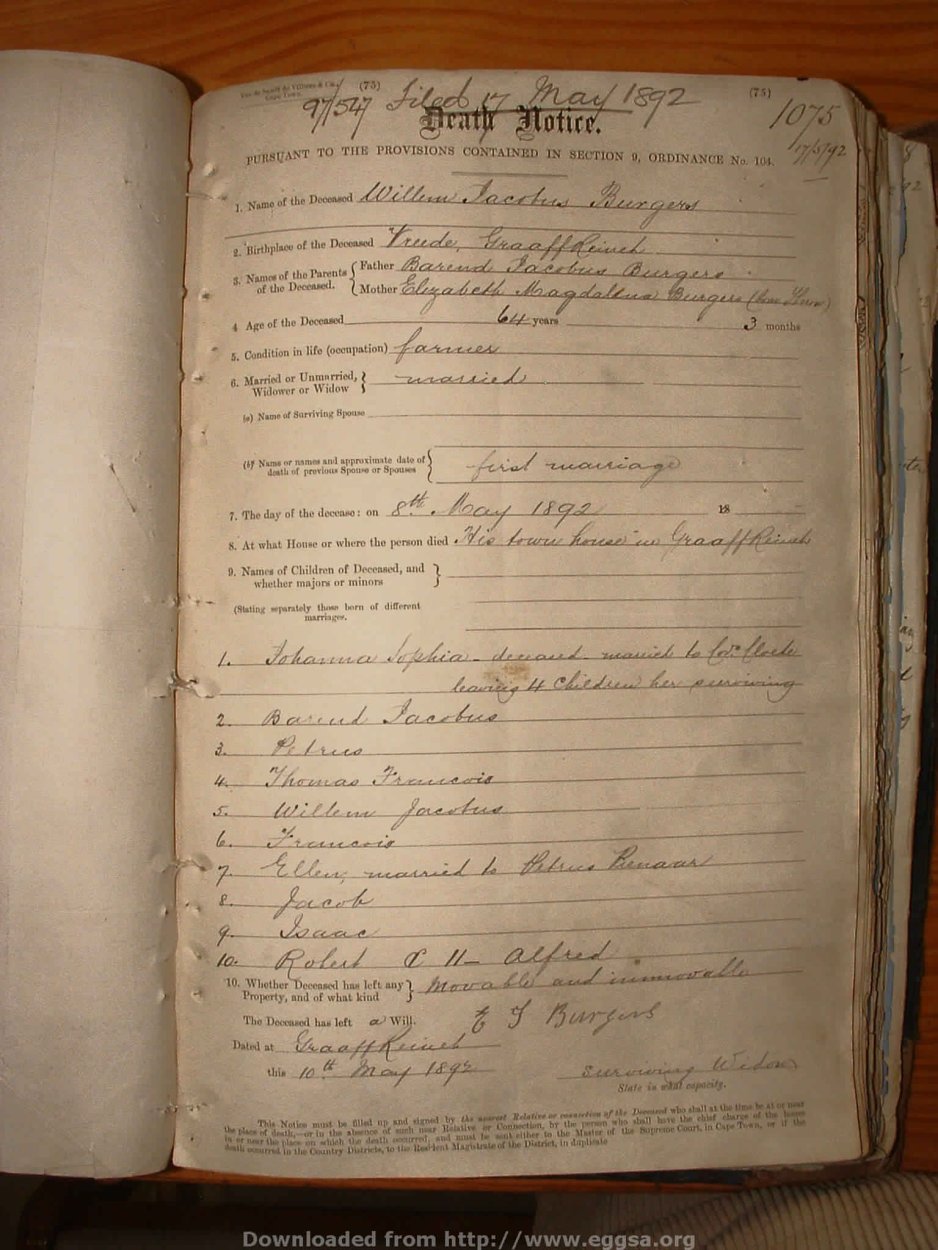 Van de Sandt de Villiers & Co.,
Cape Town.
(75)
(75)
97/547 Filed 17 May 1892
1075
17/5/92
Death Notice.
PURSUANT TO THE PROVISIONS CONTAINED IN SECTION 9, ORDINANCE No. 104.
1. Name of the Deceased Willem Jacobus Burgers
2. Birthplace of the Deceased Vreede, Graaff Reinet
3. Names of the Parents of the Deceased. { Father Barend Jacobus Burgers
Mother Elizabeth Magdalena Burgers (
4 Age of the Deceased 64 years 3 months
5. Condition in life (occupation) farmer
6. Married or Unmarried, Widower or Widow } married
(a) Name of Surviving Spouse
(b) Name or names and approximate date of death of previous Spouse or Spouses } first marriage
7. The day of the decease: on 8th May 1892 18
8. At what House or where the person died His town house in Graaff Reinet
9. Names of Children of Deceased, and whether majors or minors }
(Stating separately those born of different
marriages.
1. Johanna Sophia - deceased married to Cloete
leaving 4 children her surviving
2. Barend Jacobus
3. Petrus
4. Thomas Francois
5. Willem Jacobus
6. Francois
7. Ellen, married to Petrus Pienaar
8. Jacob
9. Isaac
10. Robert C H Alfred
10. Whether Deceased has left any Property, and of what kind } Movable and immovable
The Deceased has left a Will. E J Burgers
Dated at Graaff Reinet
this 10th May 1892 surviving Widow
State in what capacity.
This Notice must be filled up and signed by the nearest Relative or connection of the Deceased who shall at the time be at or near
the place of death,—or in the absence of such near Relative or Connection, by the person who shall have the chief charge of the house
in or near the place on which the death occurred, and must be sent either to the Master of the Supreme Court, in Cape Town, or if the
death occurred in the Country Districts, to the Resident Magistrate of the District, in duplicate
Downloaded from http://www.eggsa.org